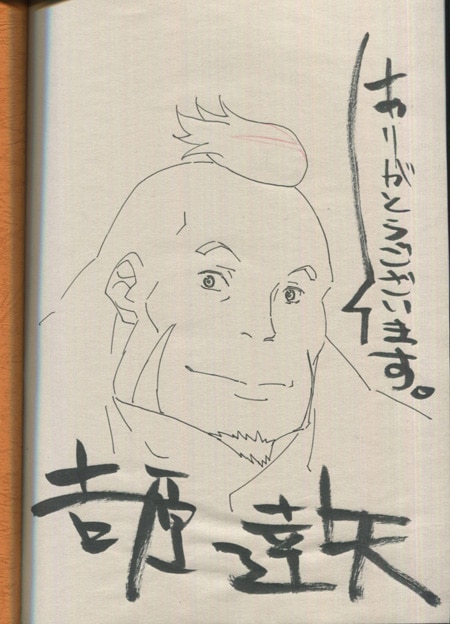 ありがとうございます。
吉原達矢